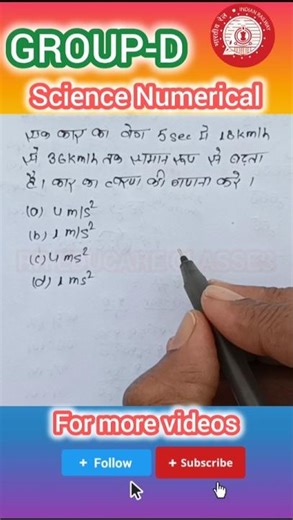 GROUP-D
INDIAN RAILWAY
Science Numerical
एक कार का वेग 5 sec में 18 km/h
से 36 km/h तक समान रूप से बढ़ता
है। कार का त्वरण की गणना करे।
(a) 4 m/s²
(b) 1 m/s²
(c) 4 ms²
(d) 1 ms²
For more videos
+ Follow
+ Subscribe